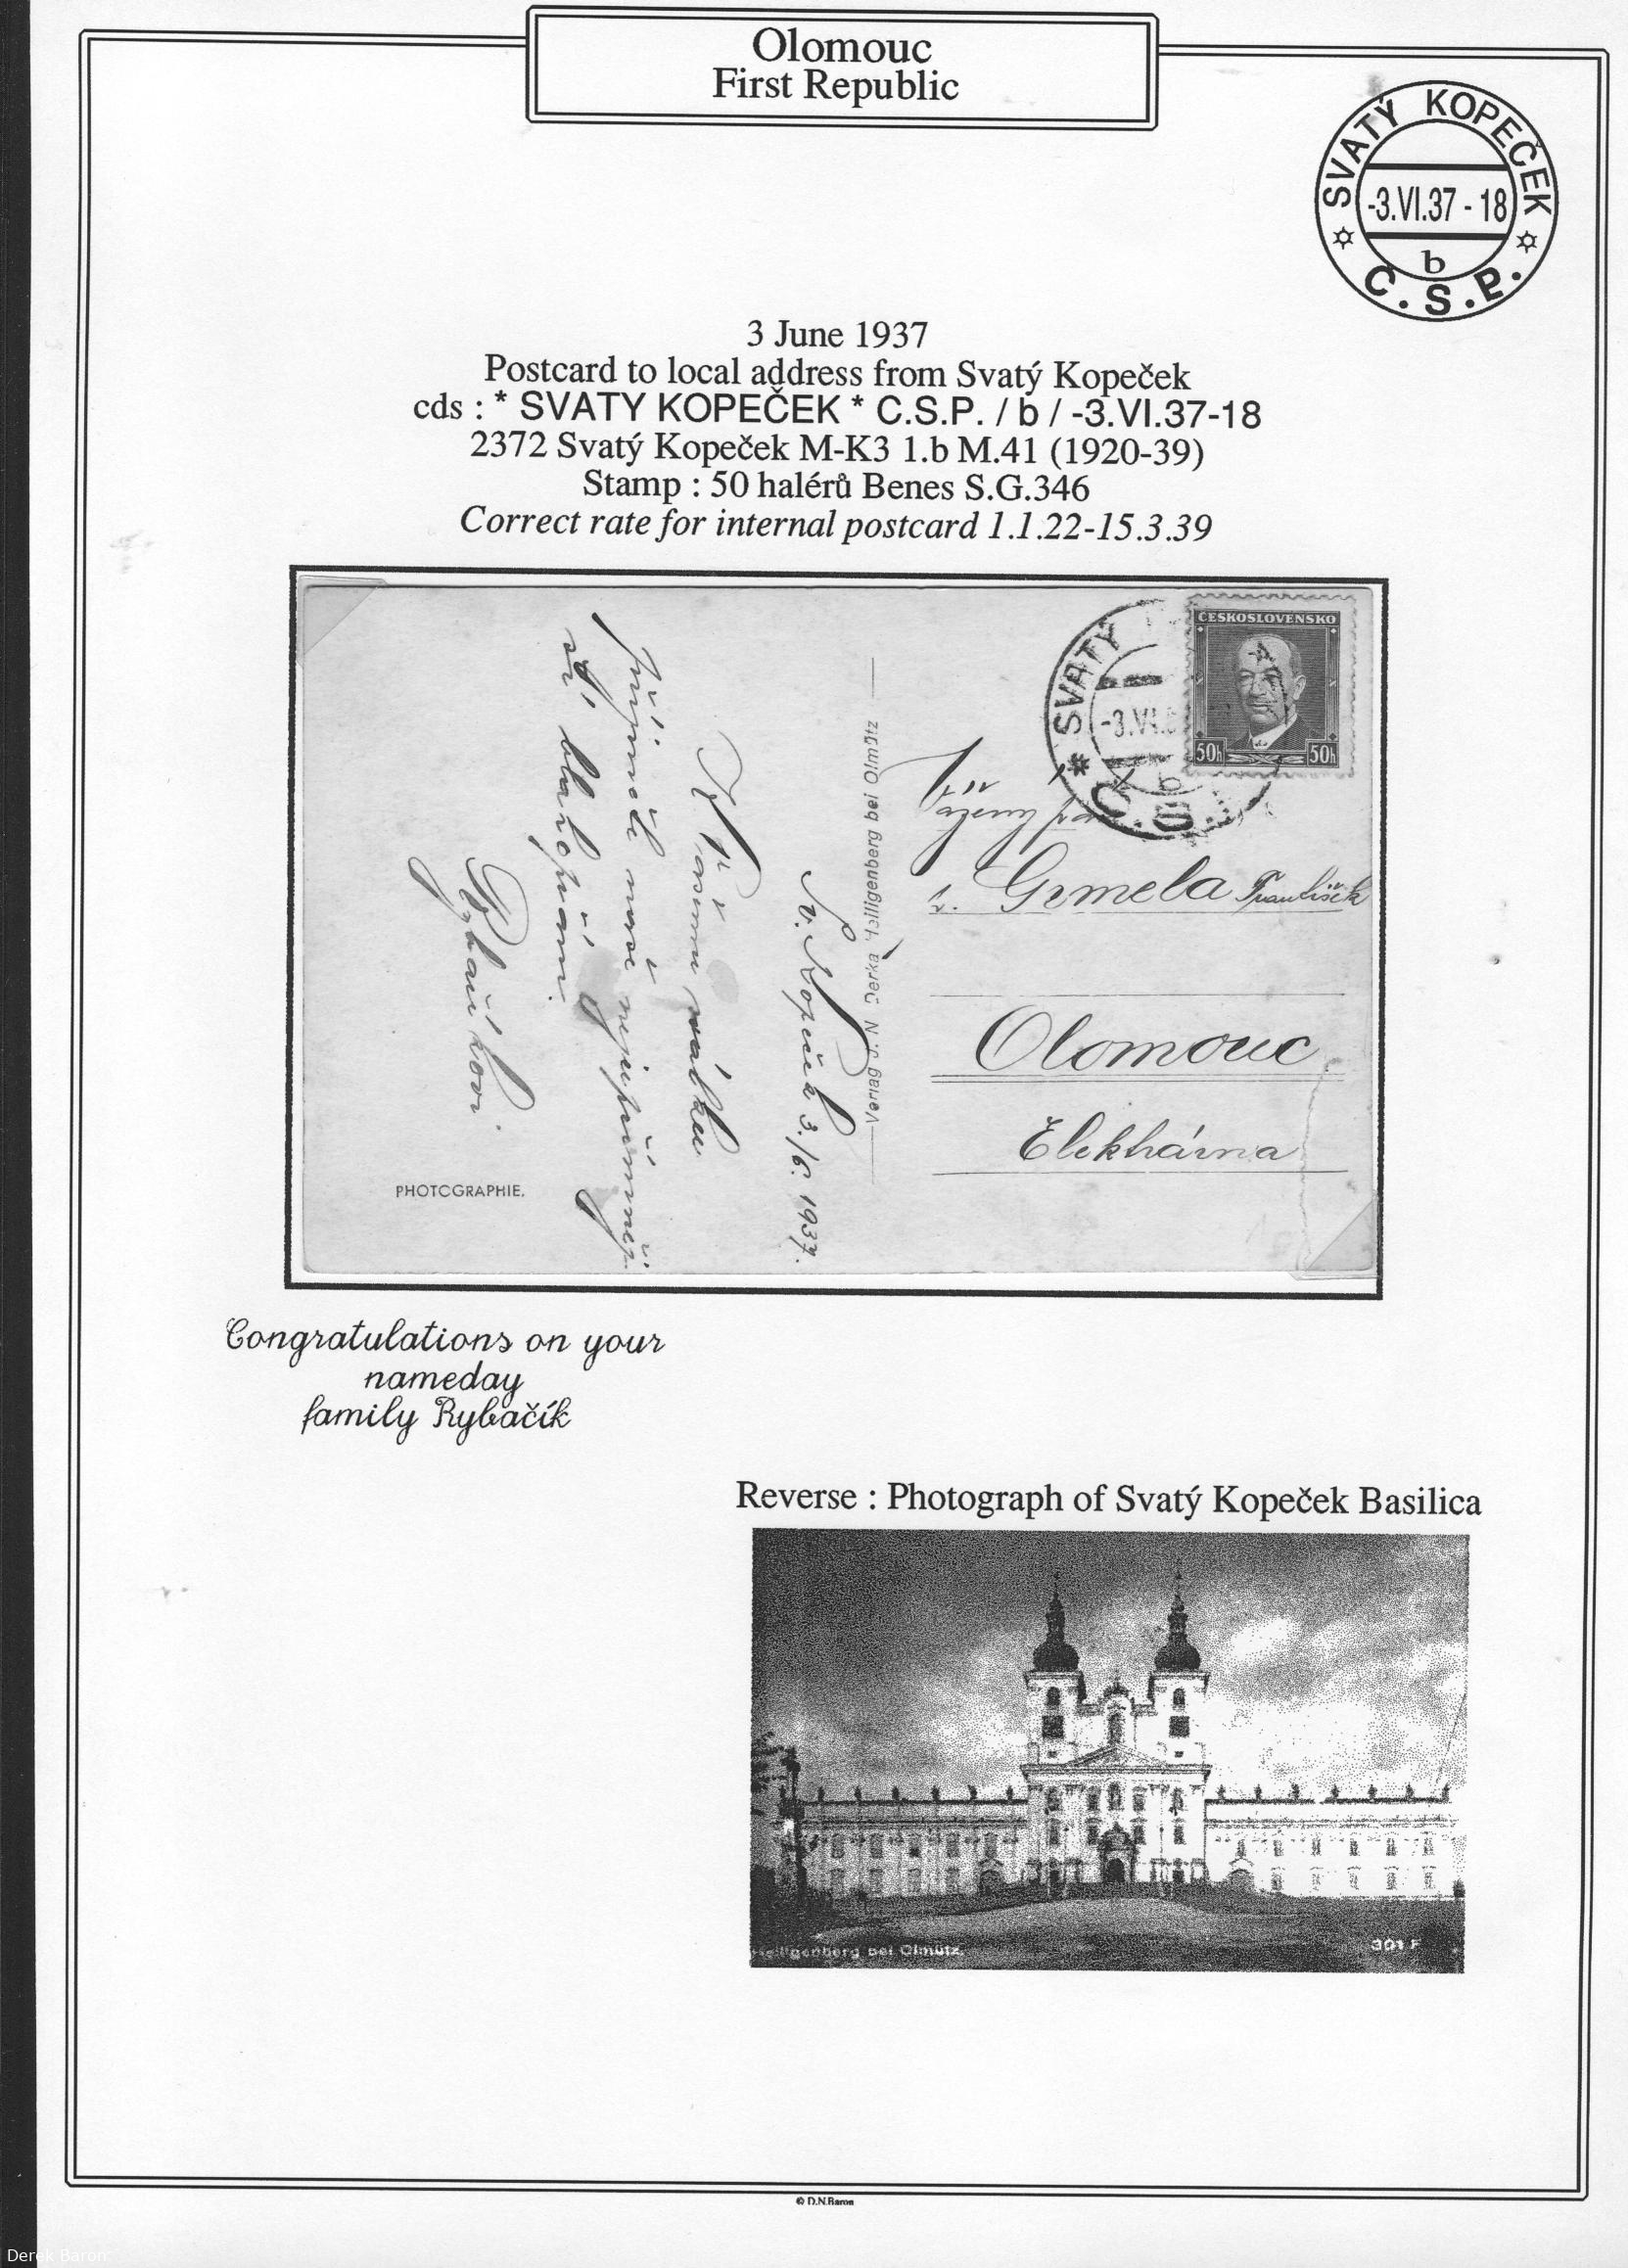 Olomouc
First Republic
SVATÝ KOPEČEK
-3.VI.37 - 18
b
Č.S.P.
3 June 1937
Postcard to local address from Svatý Kopeček
cds : * SVATY KOPEČEK * C.S.P. / b / -3.VI.37-18
2372 Svatý Kopeček M-K3 1.b M.41 (1920-39)
Stamp : 50 halérů Benes S.G.346
Correct rate for internal postcard 1.1.22-15.3.39
ČESKOSLOVENSKO
50h 50h
SVATÝ
-3.VI.
b
Č.S.
Vážený pan
Grmela František
Olomouc
Elektrárna
Verlag d. N Derka Heiligenberg bei Olmütz
Sv. Kopeček 3./6. 1937.
K Vašemu svátku
přijměte naše nejupřímnější
blahopřání.
Rybačíkovi.
PHOTOGRAPHIE.
Congratulations on your
nameday
family Rybačík
Reverse : Photograph of Svatý Kopeček Basilica
Heiligenberg bei Olmütz.
301 F
© D.N.Baron
Derek Baron